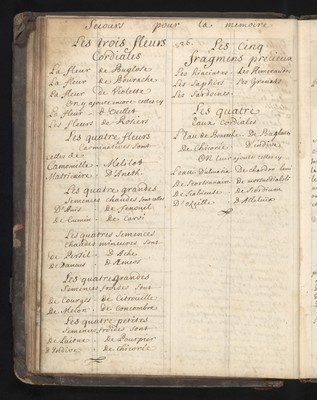 Secours pour la memoire
Les trois fleurs
Cordiales
La fleur de Buglose
La fleur de Bourache
La fleur de Violette
On y ajoute encore celles cy
La fleur d'Oeillet
Les fleurs de Rosiers
Les quatre fleurs
Carminatives sont
celles de
Camomille - Melilot
Matricaire - D'Aneth
Les quatre grandes
Semences chaudes sont celles
D'Anis - de Fenouil
de Cumin - de Carvi
Les quatres Semences
chaudes mineures sont
de Persil - D'Ache
de Daucus - D'Ameos
Les quatre grandes
Semences froides sont
de Courges de Citrouille
de Melon - de Concombre
Les quatre petites
Semences froides sont
de Laitue de Pourpier
d'Endive de Chicorée
Les Cinq
fragmens precieux
Les hiacintes Les Hemeraudes
Les Saphirs Les Grenats
Les Sardoines
Les quatre
Eaux Cordiales
L'eau de de Buglose
de Chicorée D'endive
On leur ajoute celles cy
L'eau de chardon
de Scorsonaire de
de Scabieuse de
D'ozeille D'Alleluia